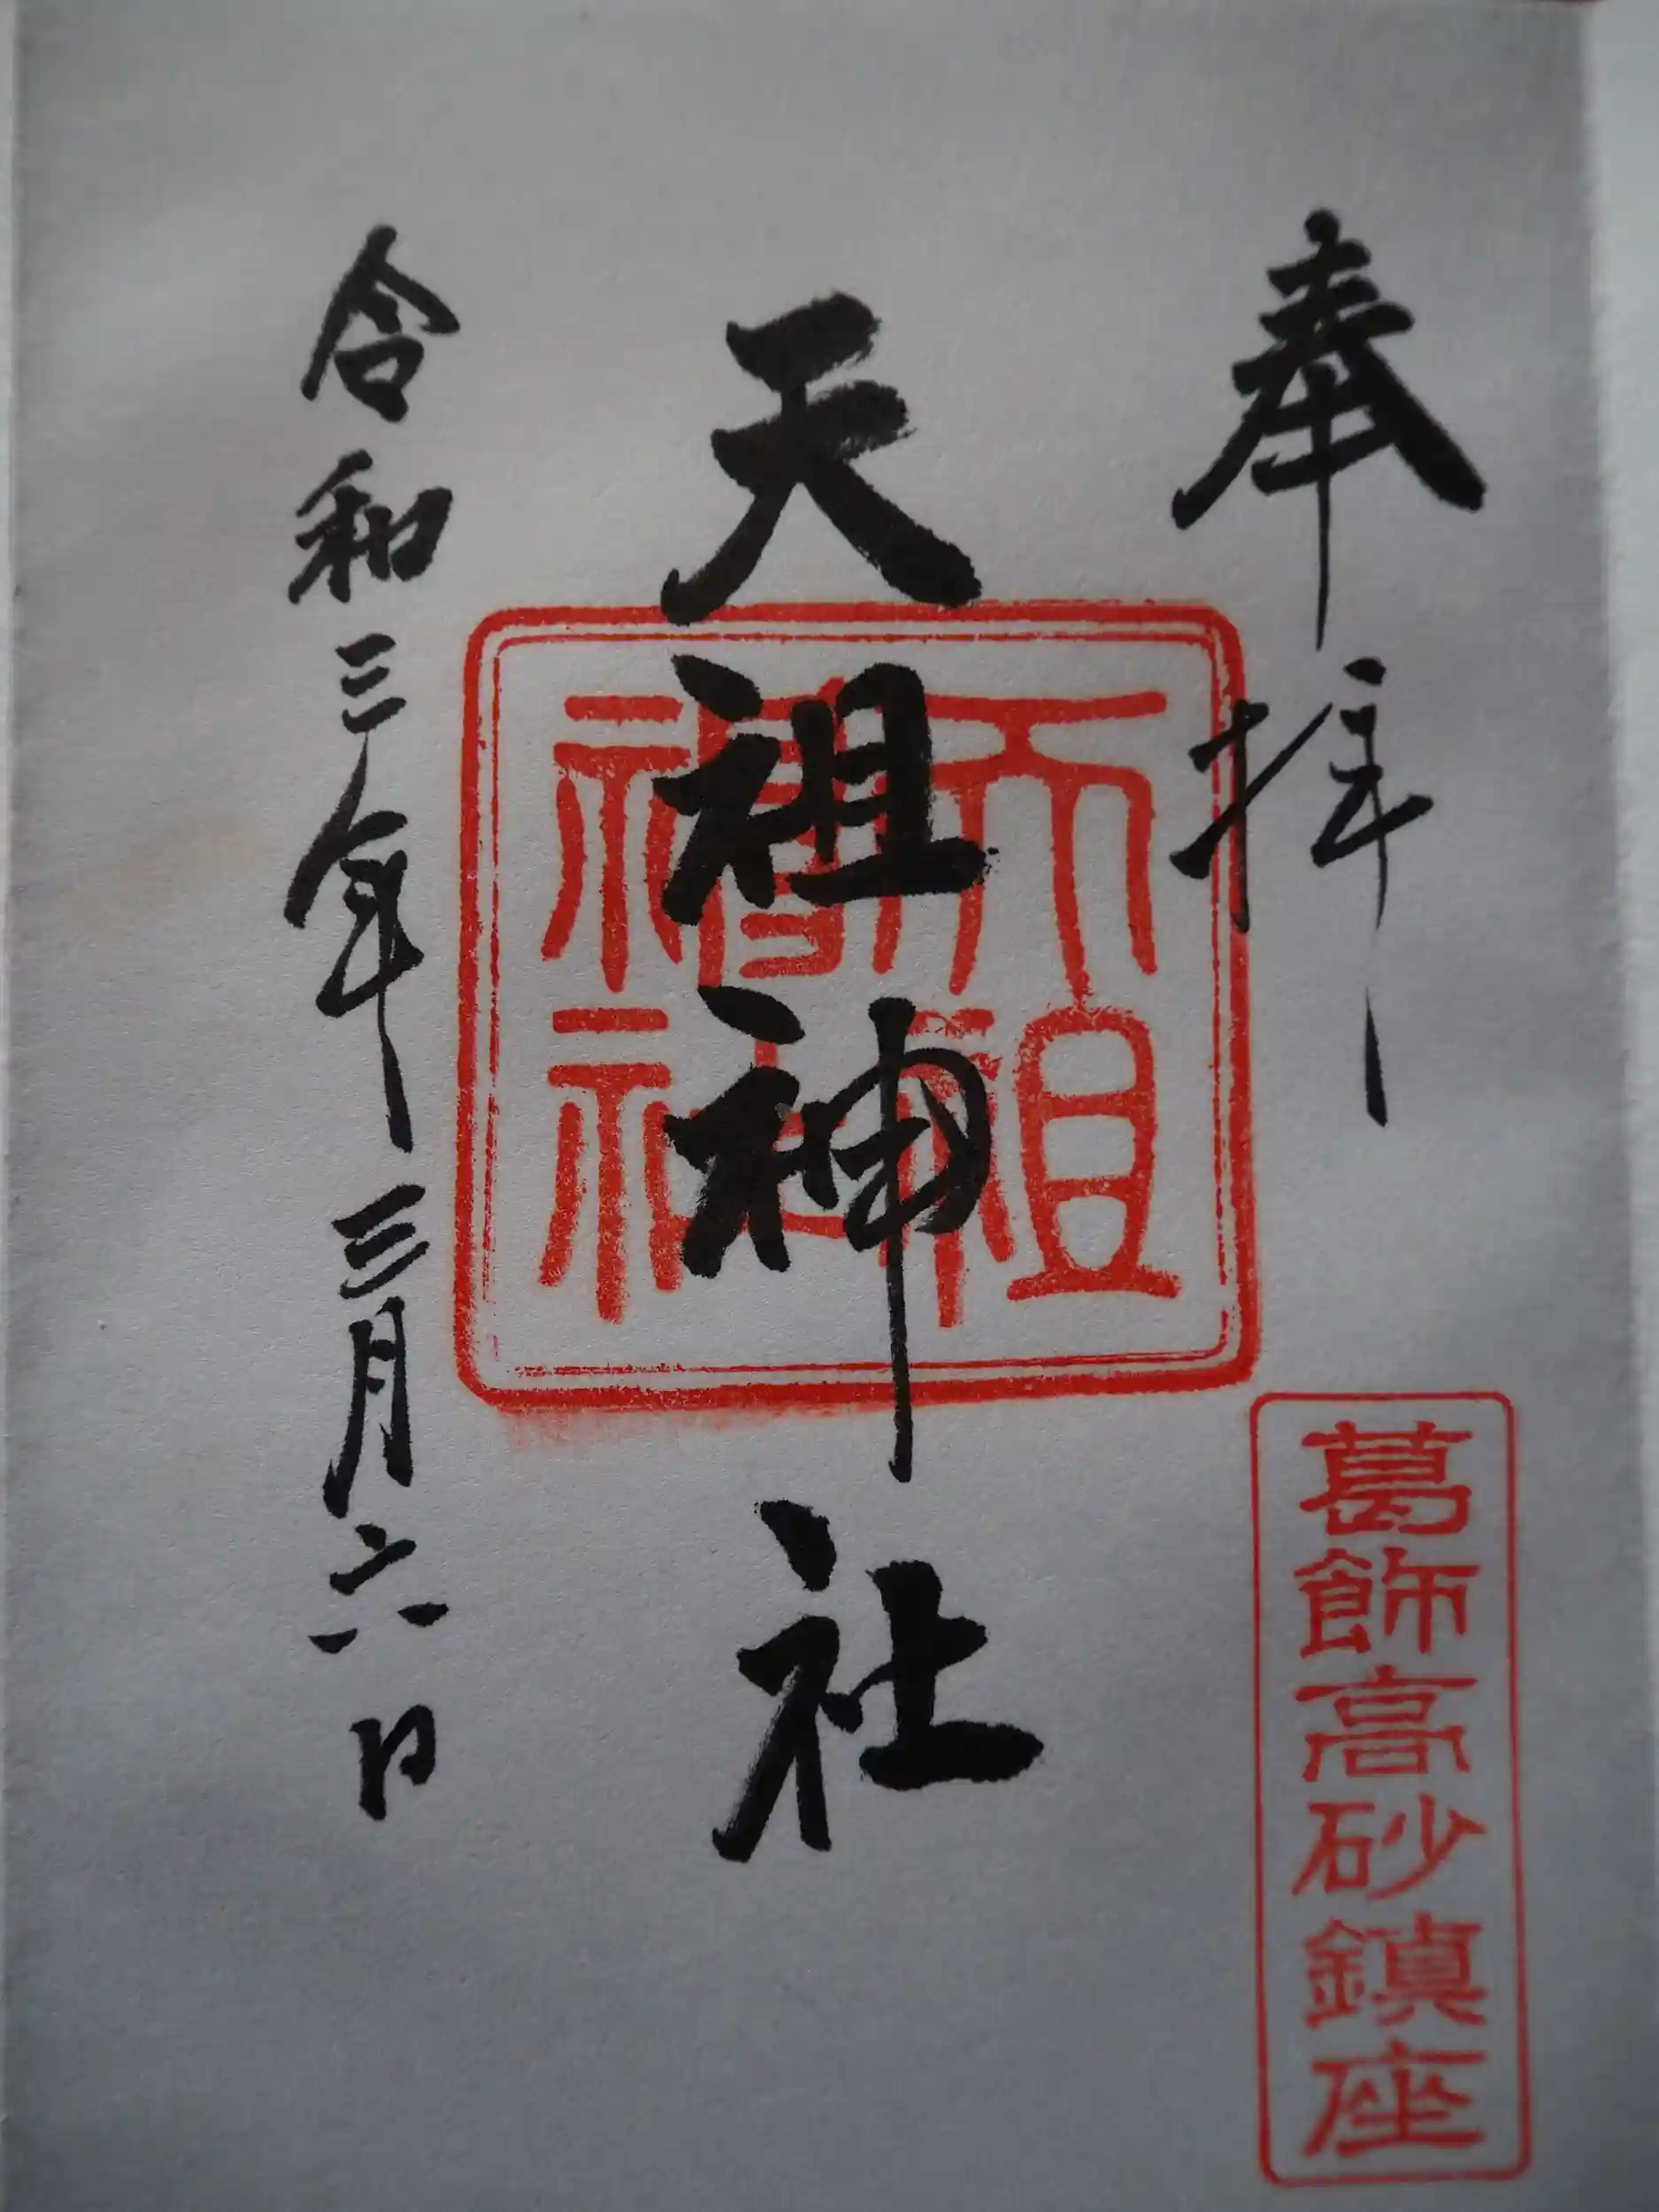 奉拝
葛飾高砂鎮座
天祖神社
天祖
神社
令和三年三月六日